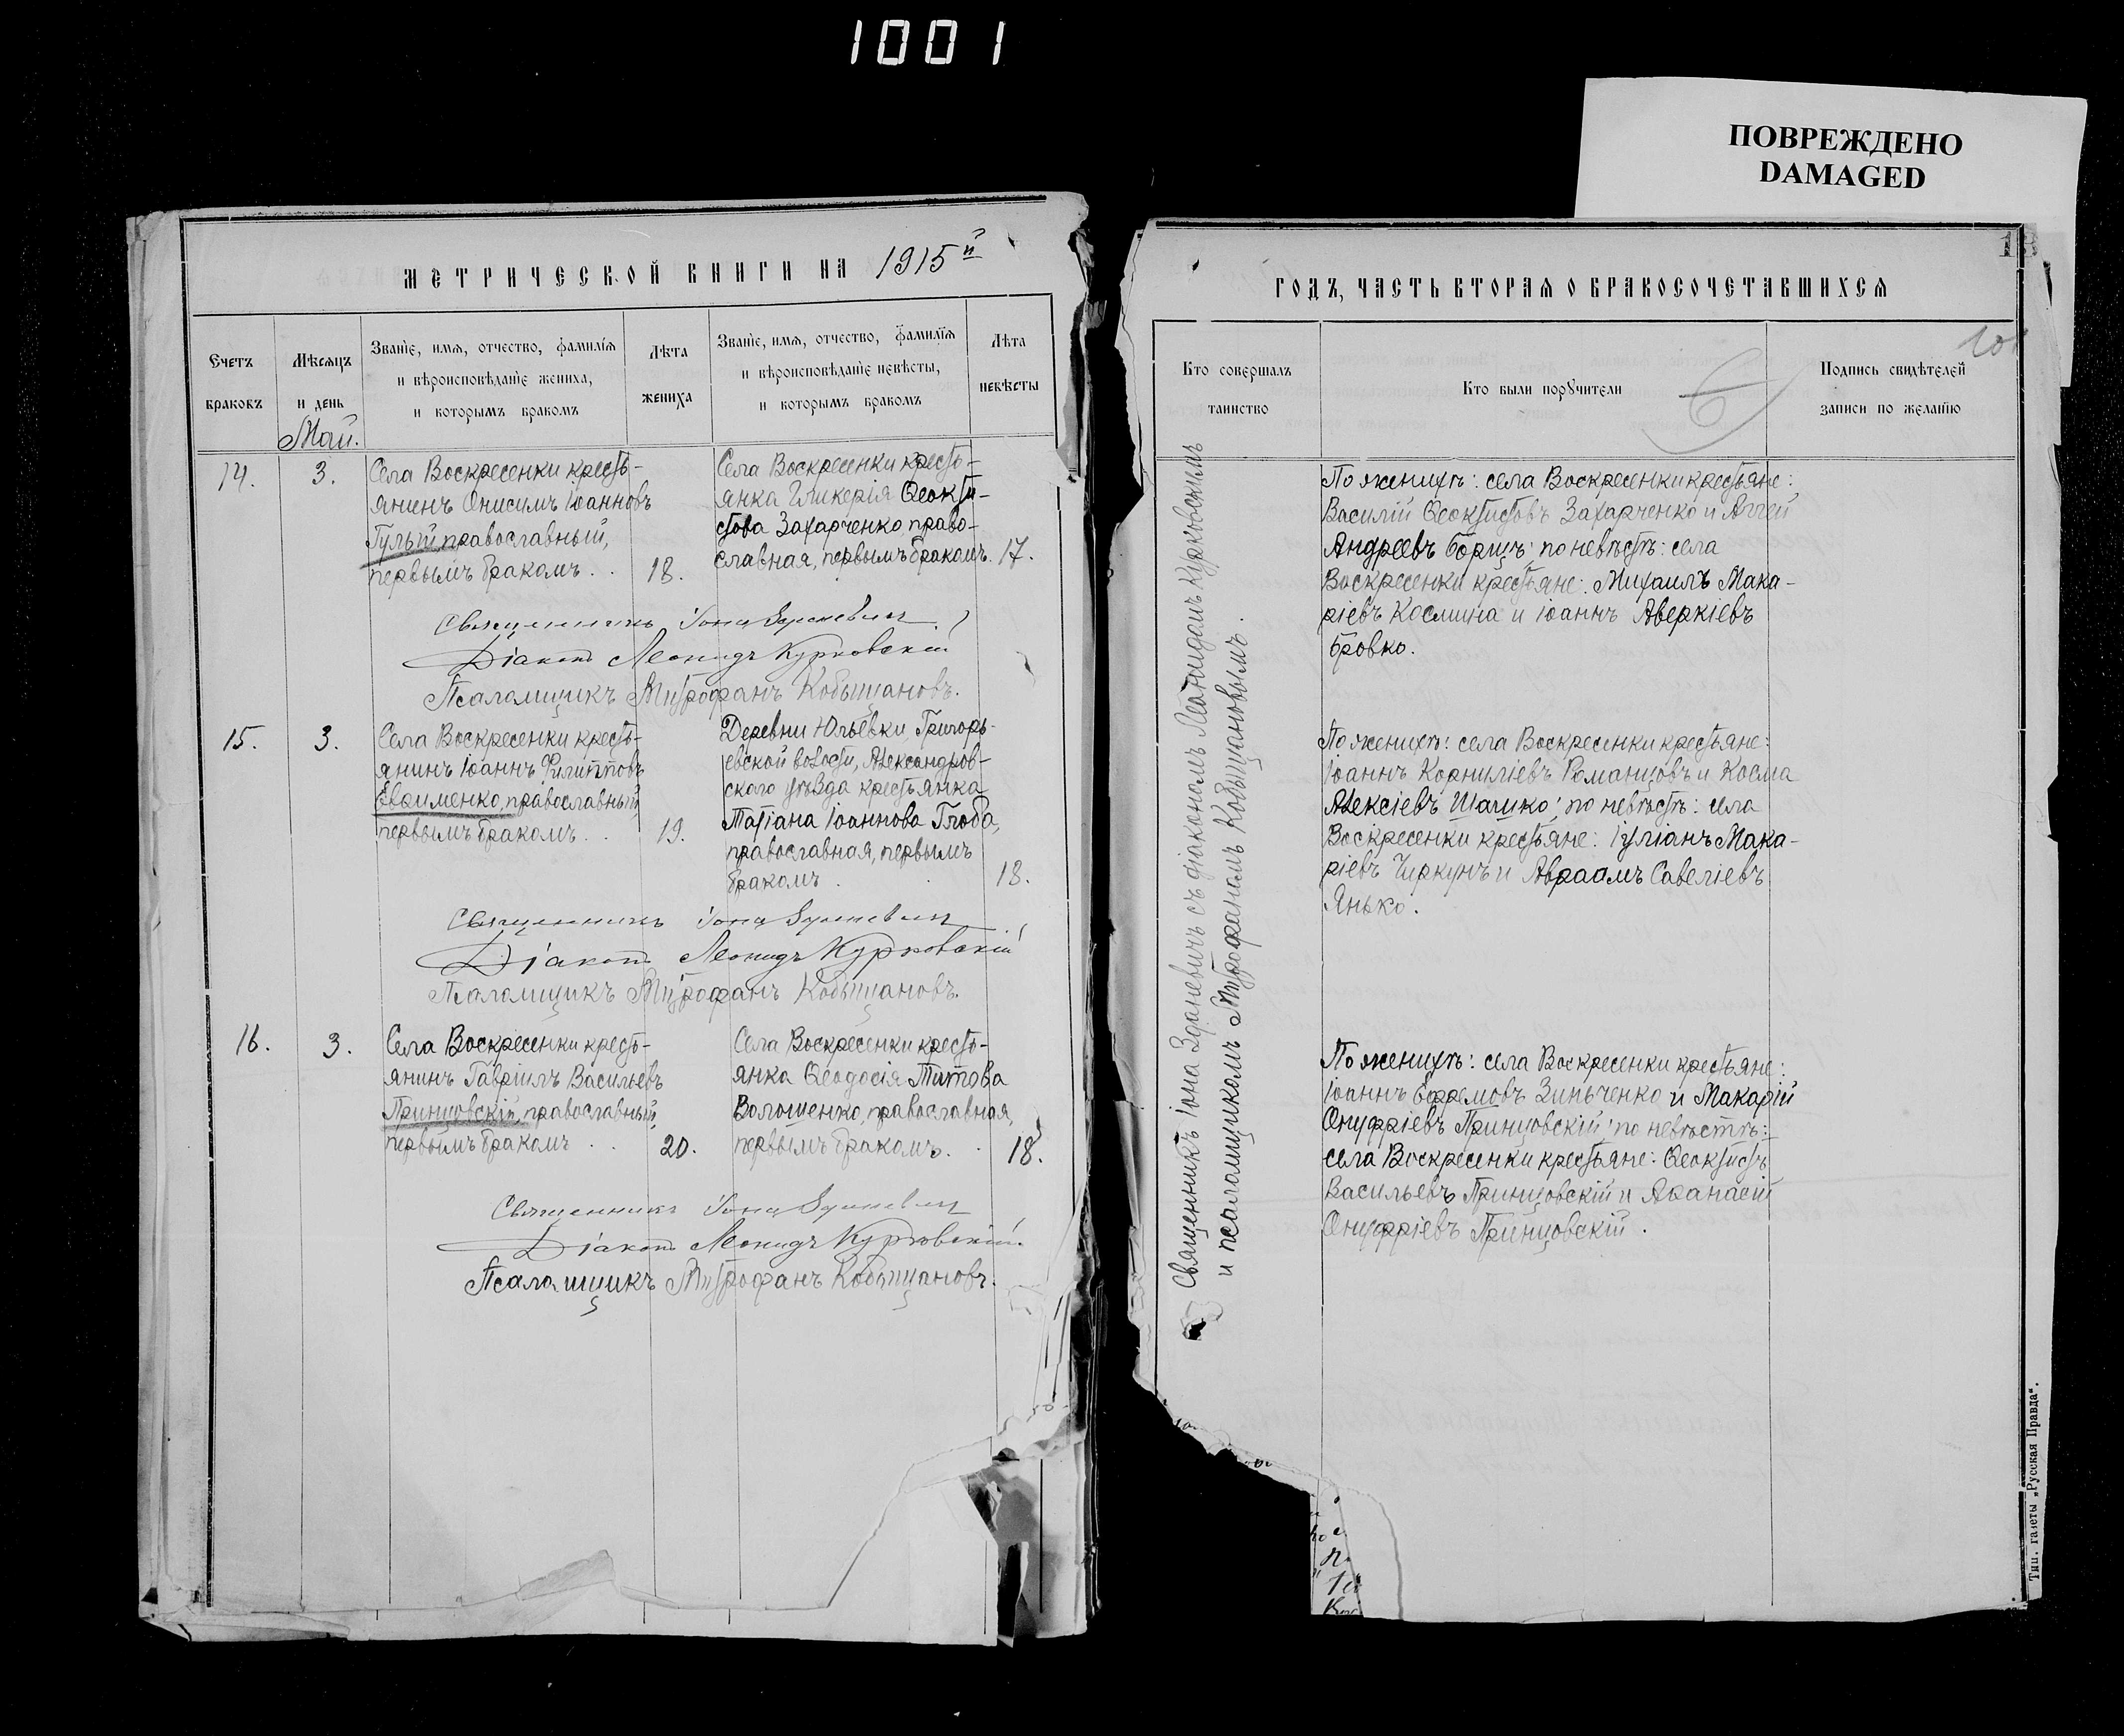 1001
ПОВРЕЖДЕНО
DAMAGED
МЕТРИЧЕСКОЙ КНИГИ НА 1915й
Счетъ браковъ
Мѣсяцъ и день
Званіе, имя, отчество, фамилія
и вѣроисповѣданіе жениха,
и которымъ бракомъ
Лѣта жениха
Званіе, имя, отчество, фамилія
и вѣроисповѣданіе невѣсты,
и которымъ бракомъ
Лѣта невѣсты
Май.
14.
3.
Села Воскресенки кресть-
янинъ Онисимъ Іоанновъ
Гулый, православный,
первымъ бракомъ . .
18.
Села Воскресенки кресть-
янка Гликерія Ѳеокти-
стова Захарченко, право-
славная, первымъ бракомъ.
17.
Священникъ Іона Зданевичъ
Діаконъ Леонидъ Курковскій
Псаломщикъ Митрофанъ Кобыщановъ.
15.
3.
Села Воскресенки кресть-
янинъ Іоаннъ Филипповъ
Евфименко, православный,
первымъ бракомъ . .
19.
Деревни Юльевки, Григорь-
евской волости, Александров-
скаго уѣзда крестьянка
Татіана Іоаннова Глоба,
православная, первымъ
бракомъ . .
18.
Священникъ Іона Зданевичъ
Діаконъ Леонидъ Курковскій
Псаломщикъ Митрофанъ Кобыщановъ.
16.
3.
Села Воскресенки кресть-
янинъ Гавріилъ Васильевъ
Принцовскій, православный,
первымъ бракомъ . .
20.
Села Воскресенки кресть-
янка Ѳеодосія Титова
Волошенко, православная,
первымъ бракомъ. .
18.
Священникъ Іона Зданевичъ
Діаконъ Леонидъ Курковскій.
Псаломщикъ Митрофанъ Кобыщановъ.
ГОДЪ, ЧАСТЬ ВТОРАЯ О БРАКОСОЧЕТАВШИХСЯ
Кто совершалъ
таинство
Кто были поручители
Подпись свидѣтелей
записи по желанію
Священникъ Іона Зданевичъ съ діакономъ Леонидомъ Курковскимъ
и псаломщикомъ Митрофаномъ Кобыщановымъ.
По женихѣ: села Воскресенки крестьяне:
Василій Ѳеоктистовъ Захарченко и Аггей
Андреевъ Борщъ; по невѣстѣ: села
Воскресенки крестьяне: Михаилъ Мака-
ріевъ Космина и Іоаннъ Аверкіевъ
Бровко.
По женихѣ: села Воскресенки крестьяне:
Іоаннъ Корниліевъ Романцовъ и Косма
Алексіевъ Шагико; по невѣстѣ: села
Воскресенки крестьяне: Іуліанъ Мака-
ріевъ Чиркунъ и Авраамъ Савеліевъ
Янько.
По женихѣ: села Воскресенки крестьяне:
Іоаннъ Ефремовъ Зинченко и Макарій
Онуфріевъ Принцовскій; по невѣстѣ:
села Воскресенки крестьяне: Ѳеоктистъ
Васильевъ Принцовскій и Аѳанасій
Онуфріевъ Принцовскій.
Тип. газеты „Русская Правда“.